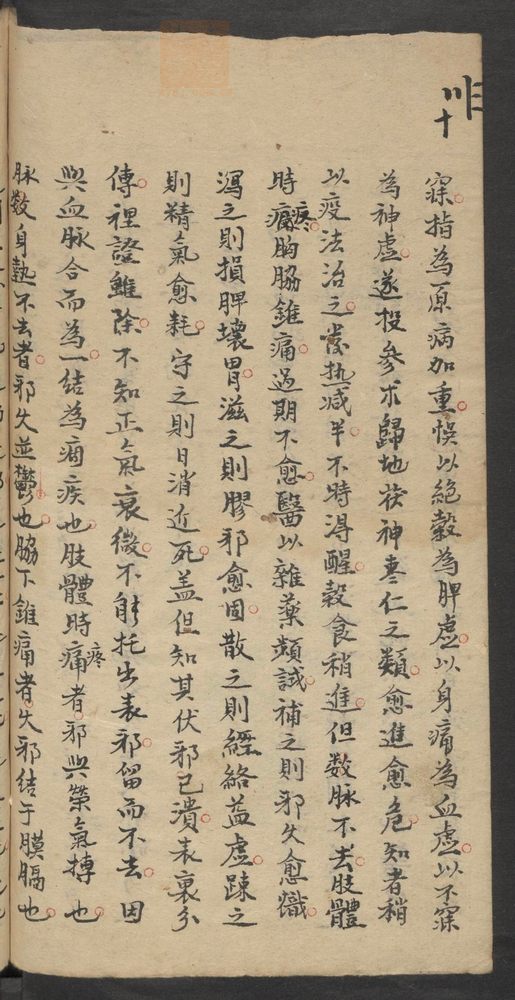 寐指為原病加重悞以絕穀為脾虛以身痛為血虛以不寐
為神虛遂投參朮歸地茯神棗仁之類愈進愈危知者稍
以疫法治之發热减半不時淂醒穀食稍進但数脉不去肢體
時疼痛胸脇錐痛過期不愈醫以雜藥頻試補之則邪火愈熾
瀉之則損脾壞胃滋之則膠邪愈固散之則經絡益虛踈之
則精氣愈耗守之則日消近死盖但知其伏邪已潰表裏分
傳裡證雖除不知正氣衰微不能托出表邪留而不去因
與血脉合而為一結為痼疾也肢體時疼痛者邪與榮氣摶也
脉数身熱不去者邪火並鬱也脇下錐痛者火邪结于膜膈也